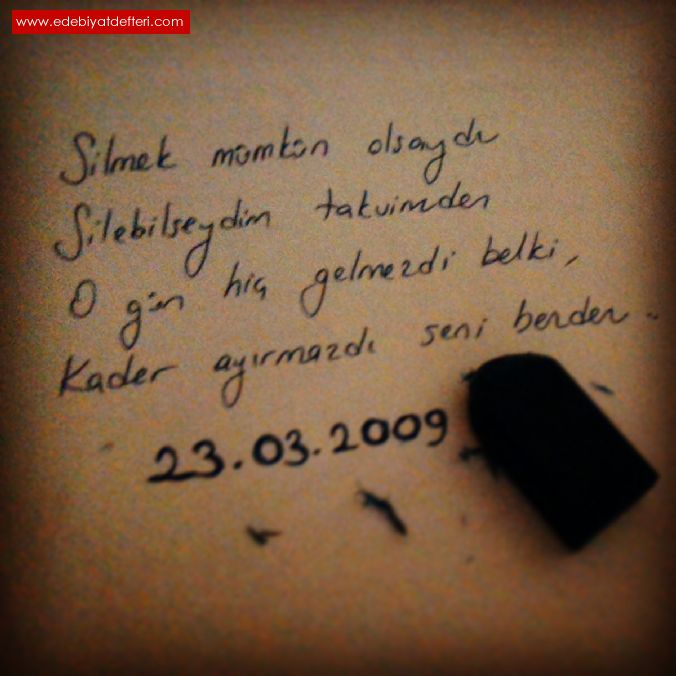 www.edebiyatdefteri.com
Silmek mümkün olsaydı
Silebilseydim takvimden
O gün hiç gelmezdi belki,
Kader ayırmazdı seni benden..
23.03.2009